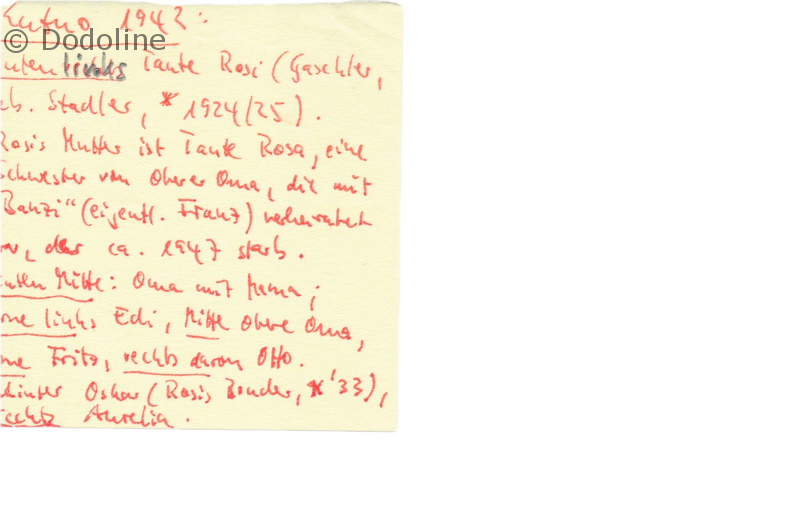 Kutno 1942:
© Dodoline
unten links Tante Rosi (Gaschler,
eb. Stadler, * 1924/25).
Rosis Mutter ist Tante Rosa, eine
Schwester von oberer Oma, die mit
"Banzi" (eigentl. Franz) verheiratet
war, der ca. 1947 starb.
unten Mitte: Oma mit Mama;
rne links Edi, Mitte obere Oma,
rne Fritz, rechts davon Otto.
dahinter Oskar (Rosis Bruder, * '33),
rechts Aurelia.